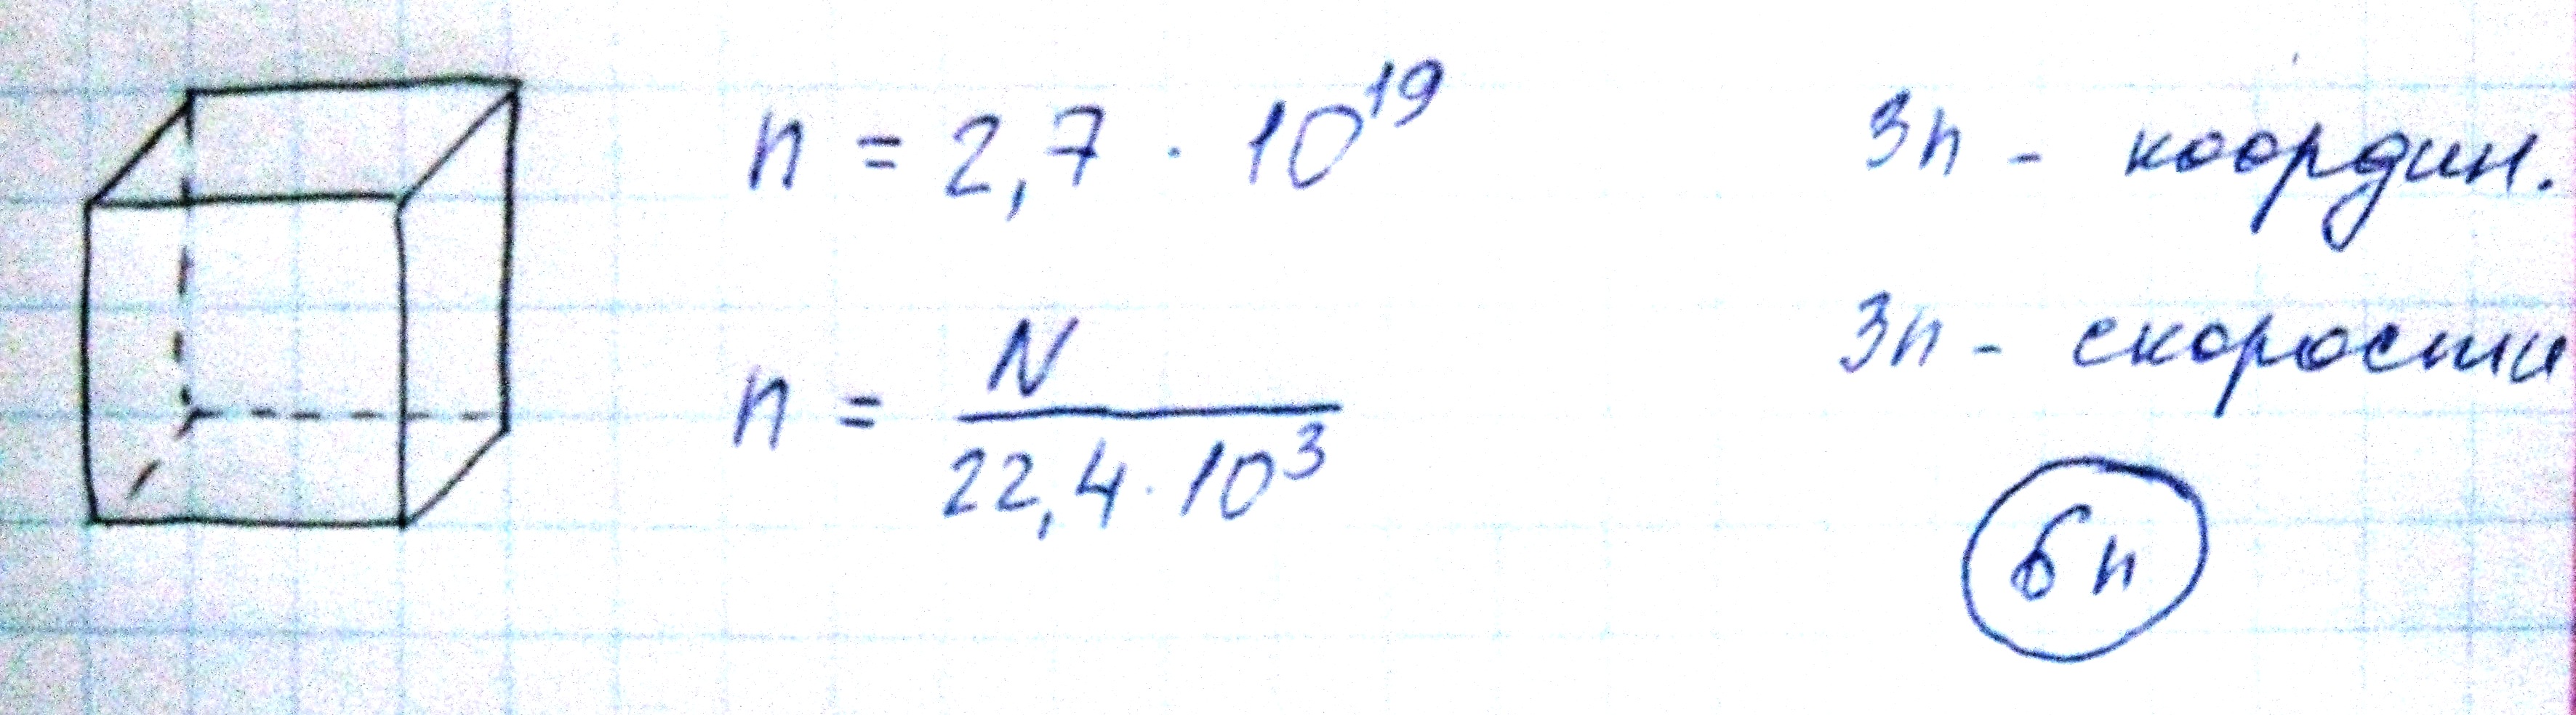 n = 2,7 · 10¹⁹
n = N / 22,4 · 10³
3n - координ.
3n - скорости
6n